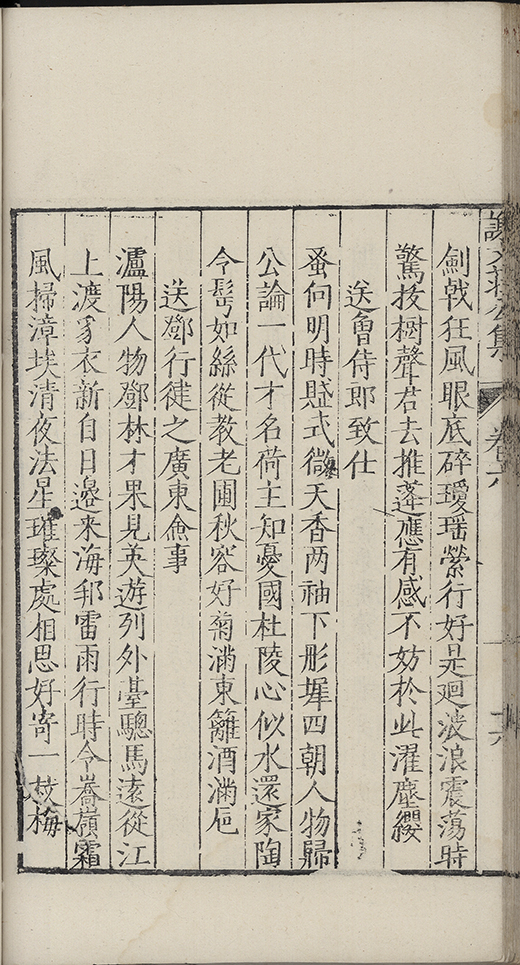 謝文莊公集 卷六 十六
劍戟狂風眼底碎瓊瑶縈行好是廻波浪震蕩時
驚拔樹聲君去推蓬應有感不妨於此濯塵纓
送魯侍郎致仕
蚤向明時賦式微天香两袖下形墀四朝人物歸
公論一代才名荷主知憂國杜陵心似水還家陶
令髩如絲從教老圃秋容好菊滿東籬酒滿巵
送鄧行徤之廣東僉事
瀘陽人物鄧林才果見英遊列外臺驄馬遠從江
上渡豸衣新自日邉来海邦雷雨行時令喬嶺霜
風掃漳埃清夜法星璀璨處相思好寄一枝梅